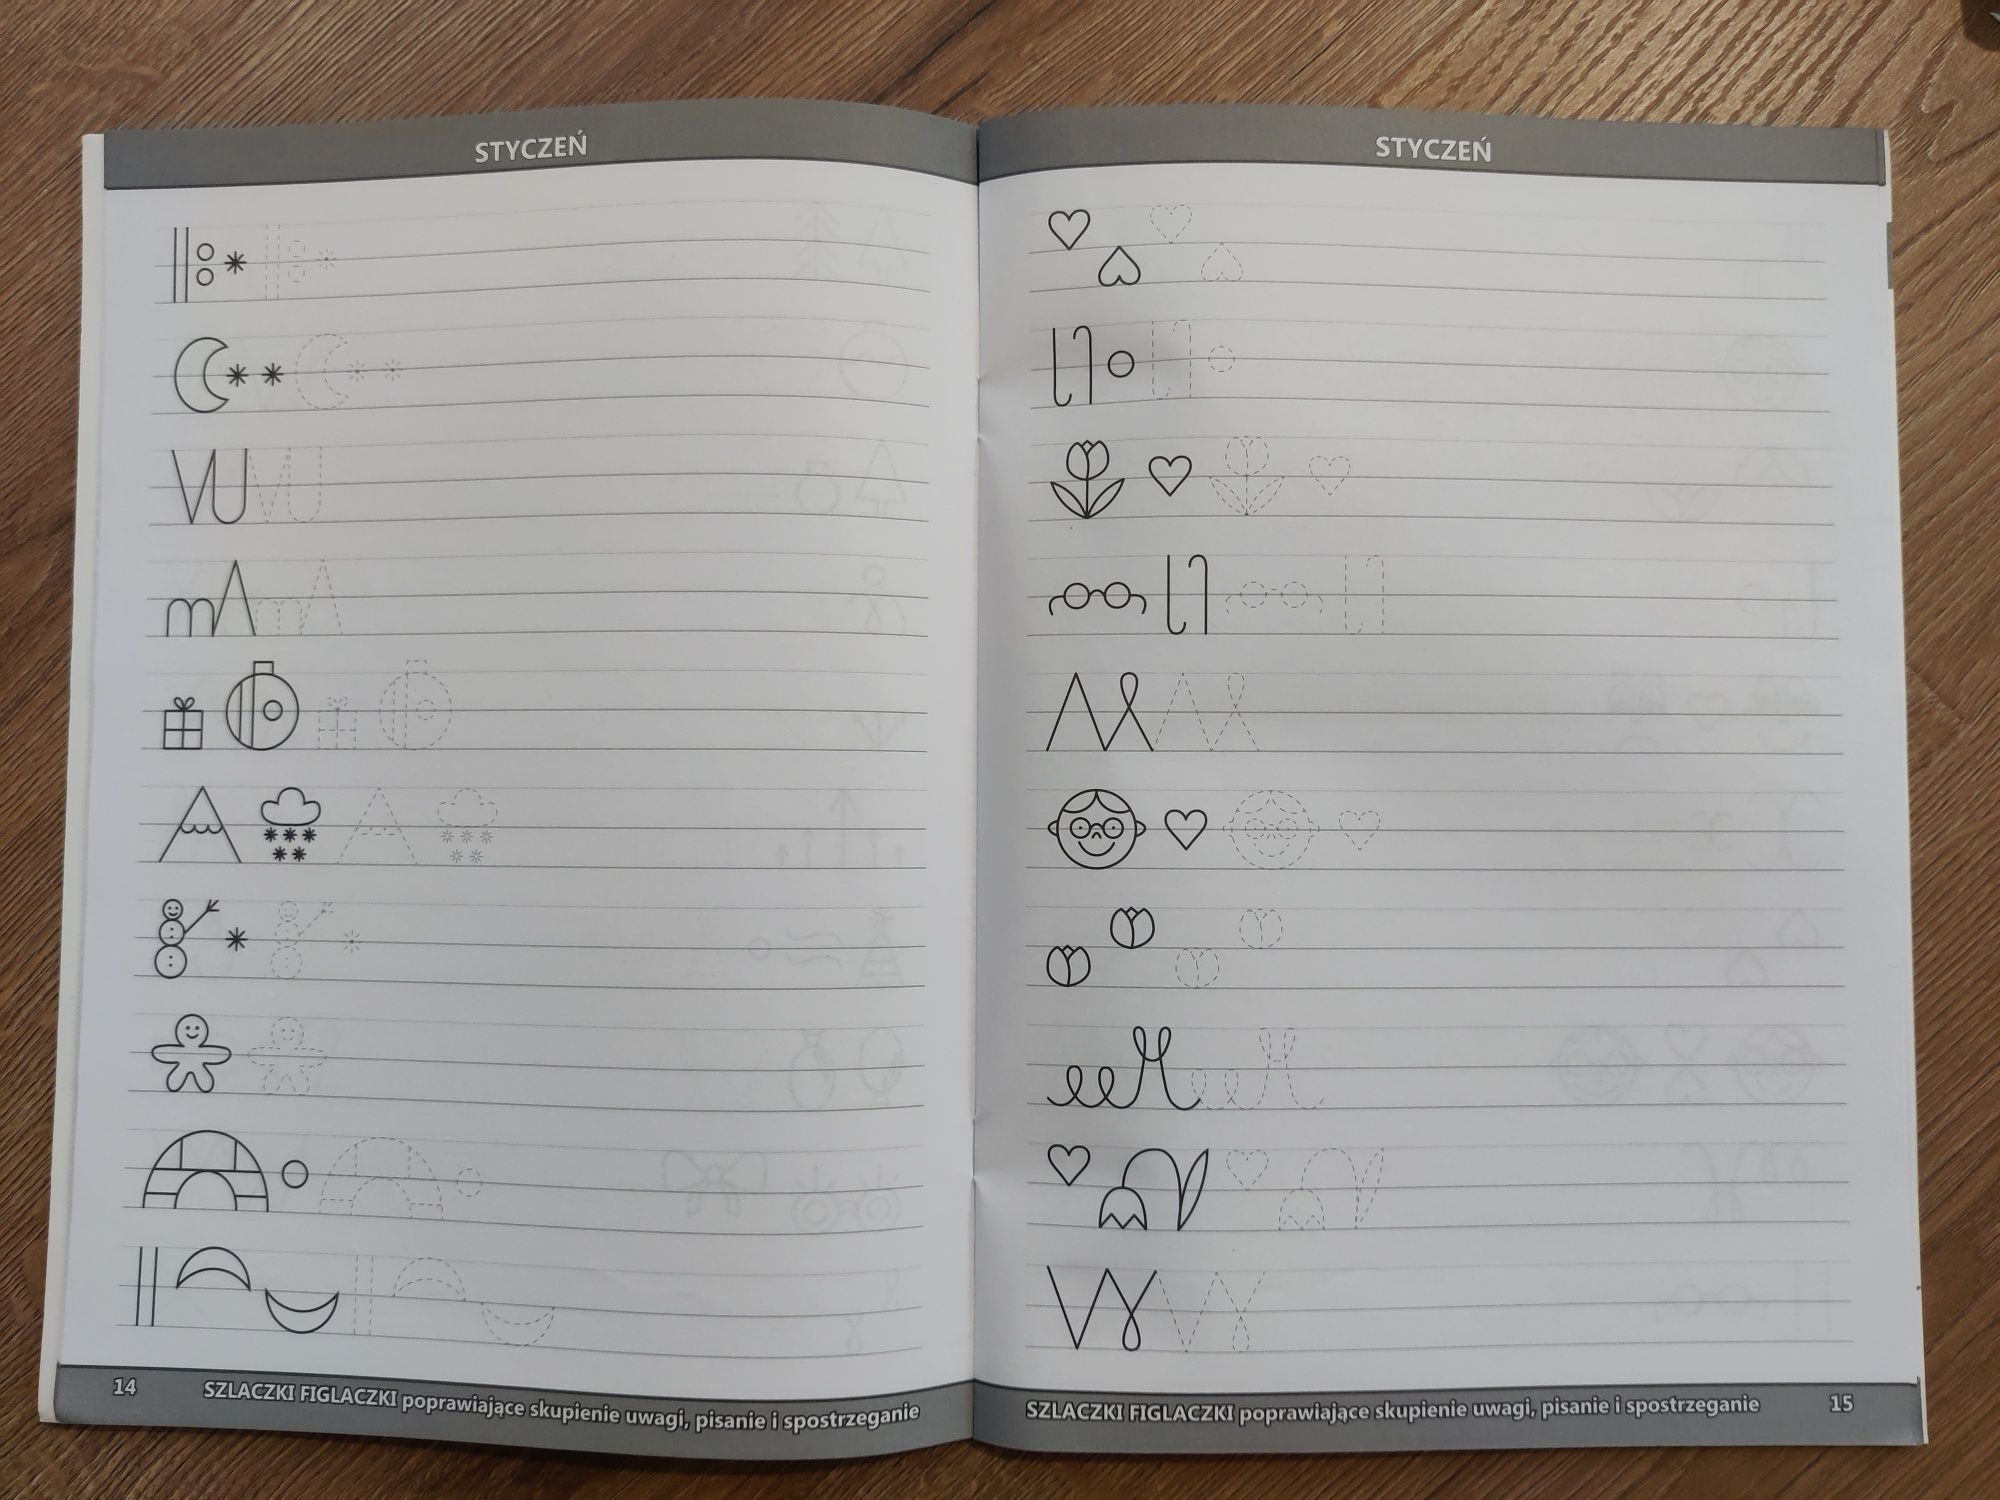 STYCZEŃ
14 SZLACZKI FIGLACZKI poprawiające skupienie uwagi, pisanie i spostrzeganie
STYCZEŃ
SZLACZKI FIGLACZKI poprawiające skupienie uwagi, pisanie i spostrzeganie 15